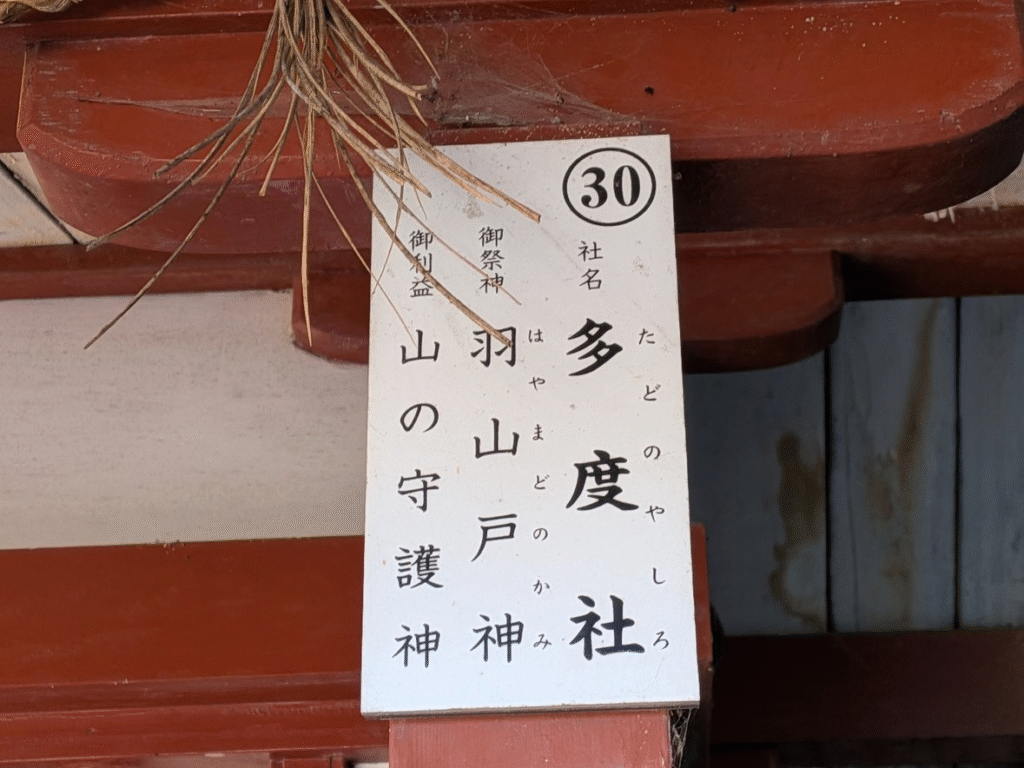 30
社名 多度社
たどのやしろ
御祭神 羽山戸神
はやまどのかみ
御利益 山の守護神